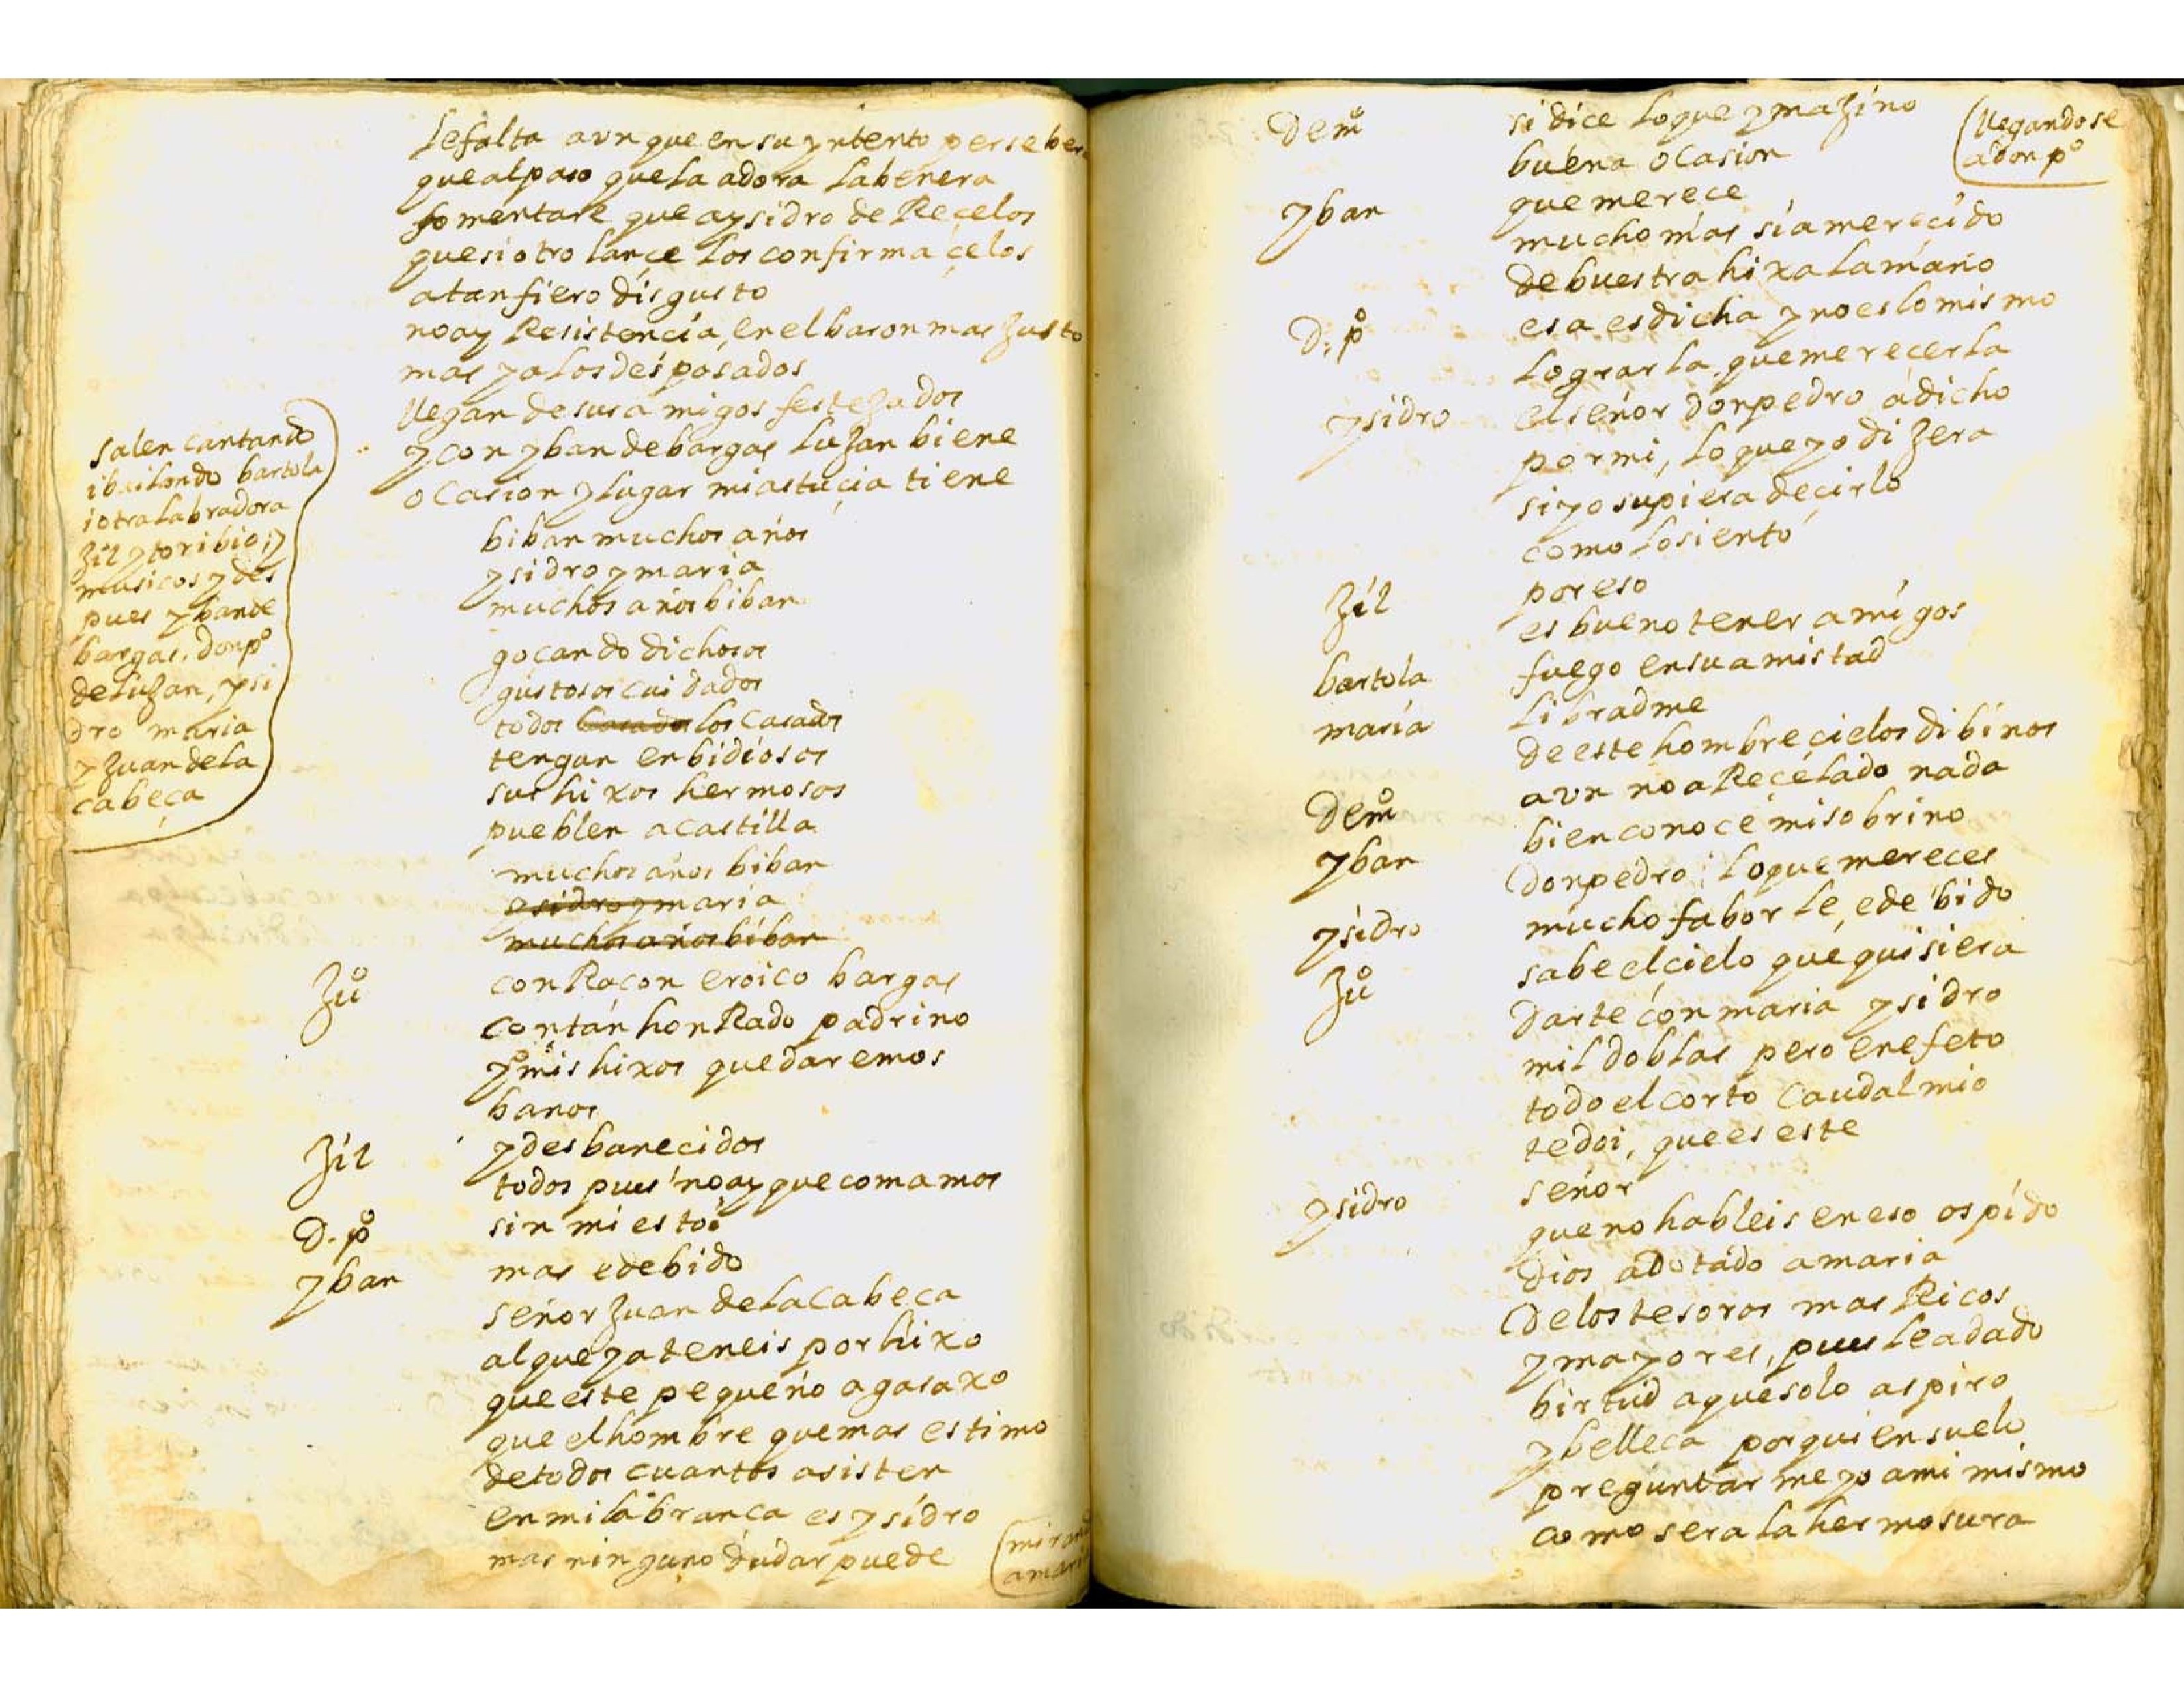 lefalta avnque en su yntento perseber
que al paso que la adora la benera
fomentare que aysidro de Recelos
que si otro lançe los confirma çelos
atan fiero disgusto
no ay Resistencia, en el baron mas Justo
mas ya los desposados
llegan de sus amigos festeJados
y con yban de bargas luJan biene
ocasion y lugar mi astuçia tiene
salen cantando
i bailando bartola
i otra labradora
Jil y toribio, y
musicos y des
pues yban de
bargas. don po
de luJan, ysi
dro maria
y Juan de la
cabeça
biban muchos años
ysidro y maria
muchos años biban
goçando dichosos
gustosos cuidados
todos Casados los Casados
tengan enbidiosos
sus hixos hermosos
pueblen a castilla
muchos años biban
ysidro y maria
muchos años biban
Juo con Raçon eroico bargas
con tan honRado padrino
yo mis hixos quedaremos
banos
Jil y desbanecidos
todos pues no ay que comamos
D. po sin mi estoi
yban mas e debido
señor Juan de la Cabeça
al que ya teneis por hixo
que este pequeño agasaxo
que el hombre que mas estimo
de todos cuantos asisten
en mi labrança es ysidro
mas ninguno dudar puede
(miran
amari
Demo si dice lo que ymaJino
(llegandose
a don po
buena ocasion
yban que merece
mucho mas si a merecido
de buestra hixa la mano
D. po esa es dicha y no es lo mismo
lograrla, que merecerla
ysidro el señor don pedro a dicho
por mi, lo que yo diJera
si yo supiera decirlo
como lo siento
Jil por eso
es bueno tener amigos
bartola fuego en su amistad
maria libradme
de este hombre cielos dibinos
Demo avn no a Recelado nada
yban bien conoce mi sobrino
don pedro lo que mereces
ysidro mucho fabor le, e debido
Juo sabe el cielo que quisiera
Darte con maria ysidro
mil doblas pero en efeto
todo el corto Caudal mio
te doi, que es este
ysidro señor
que no hableis en eso os pido
Dios adotado a maria
De los tesoros mas Ricos
y mayores, pues le a dado
birtud a que solo aspiro
y belleça porque en suelo
preguntarme yo a mi mismo
como sera la hermosura